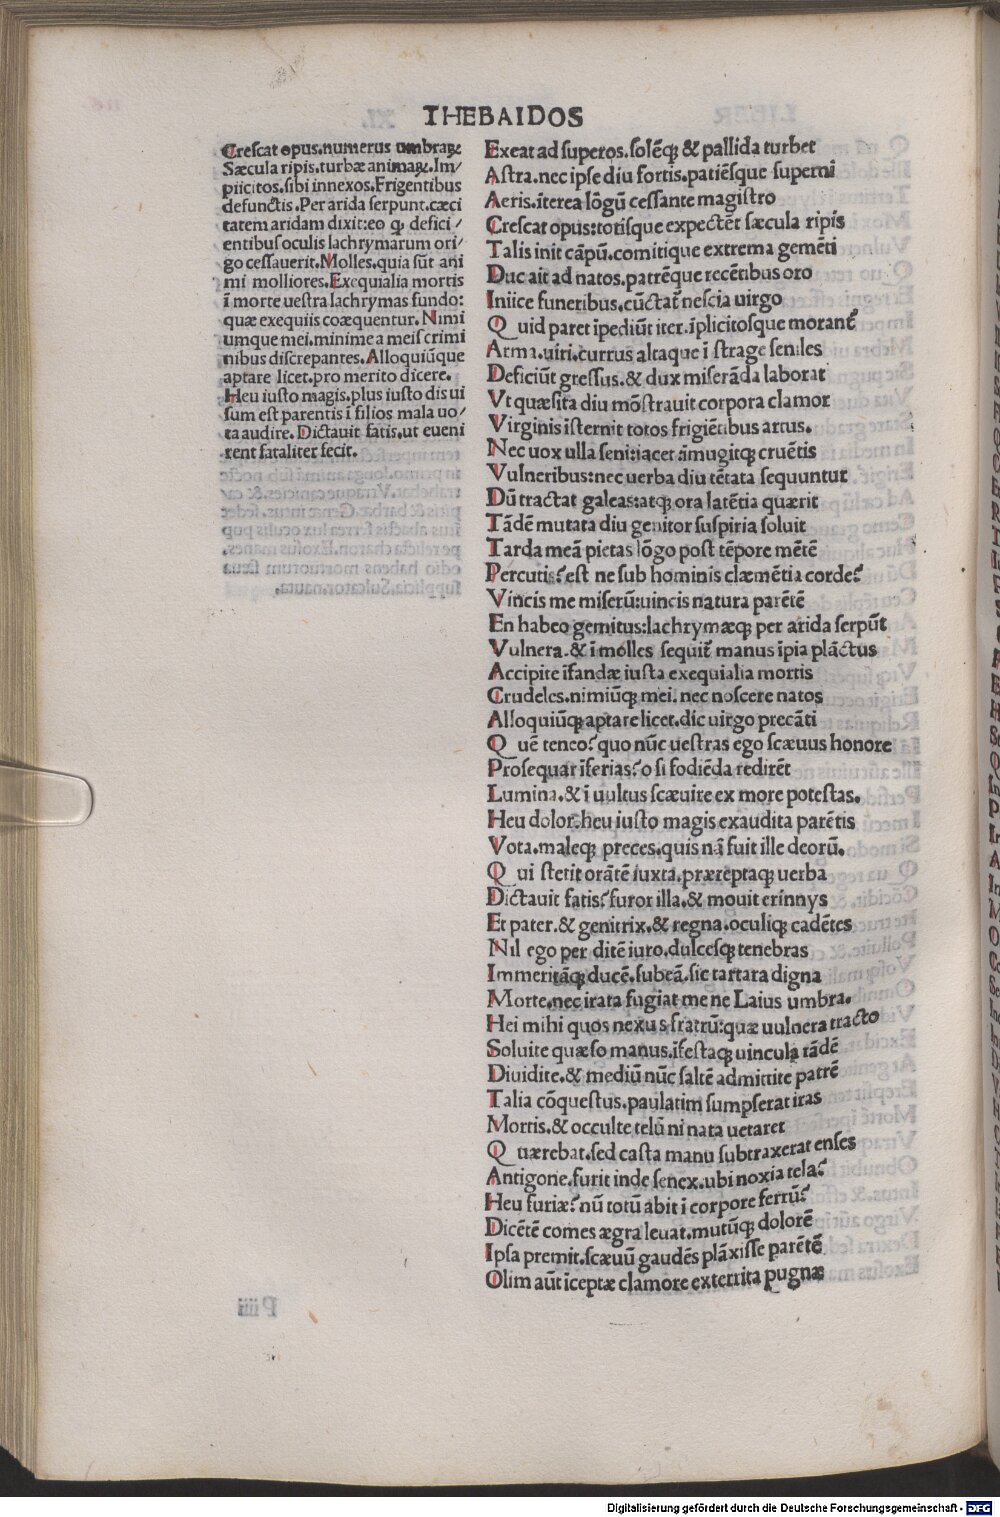 THEBAIDOS
Crescat opus.numerus umbraꝝ
Sæcula ripis.turbæ animaꝝ.Im/
plicitos.sibi innexos.Frigentibus
defunctis.Per arida serpunt.cæci
tatem aridam dixit:eo ꝙ defici/
entibus oculis lachrymarum ori/
go cessauerit.Molles.quia sūt ani
mi molliores.Exequialia mortis
ī morte uestra lachrymas fundo:
quæ exequiis coæquentur.Nimi
umque mei.minime a meis crimi
nibus discrepantes.Alloquiūque
aptare licet.pro merito dicere.
Heu iusto magis.plus iusto dis ui
sum est parentis ī filios mala uo/
ta audire.Dictauit fatis.ut eueni
rent fataliter fecit.
Exeat ad superos.solēqꝫ & pallida turbet
Astra.nec ipse diu fortis.patiēsque superni
Aeris.īterea lōgū cessante magistro
Crescat opus:totisque expectēt sæcula ripis
Talis init cāpū.comitique extrema gemēti
Duc ait ad natos.patrēque recētibus oro
Iniice funeribus.cūctat̄ nescia uirgo
Quid paret īpediūt iter.īplicitosque morant̄
Arma.uiri.currus altaque ī strage seniles
Deficiūt gressus.& dux miserāda laborat
Vt quæsita diu mōstrauit corpora clamor
Virginis īsternit totos frigiētibus artus.
Nec uox ulla seni:iacet īmugitqꝫ cruētis
Vulneribus:nec uerba diu tētata sequuntur
Dū tractat galeas:atqꝫ ora latētia quærit
Tādē mutata diu genitor suspiria soluit
Tarda meā pietas lōgo post tēpore mētē
Percutis?est ne sub hominis clæmētia corde?
Vincis me miserū:uincis natura parētē
En habeo gemitus:lachrymæqꝫ per arida serpūt
Vulnera.& ī molles sequit̄ manus īpia plāctus
Accipite īfandæ iusta exequialia mortis
Crudeles.nimiūqꝫ mei.nec noscere natos
Alloquiūqꝫ aptare licet.dic uirgo precāti
Quē teneo?quo nūc uestras ego scæuus honore
Prosequar īferias?o si fodiēda redirēt
Lumina.& ī uultus scæuire ex more potestas.
Heu dolor:heu iusto magis exaudita parētis
Vota.maleqꝫ preces.quis nā fuit ille deorū.
Qui stetit orātē iuxta.præreptaqꝫ uerba
Dictauit fatis?furor illa.& mouit erinnys
Et pater.& genitrix.& regna.oculiqꝫ cadētes
Nil ego per ditē iuro.dulcesqꝫ tenebras
Immeritāqꝫ ducē.subeā.sic tartara digna
Morte.nec irata fugiat me ne Laius umbra.
Hei mihi quos nexus fratrū:quæ uulnera tracto
Soluite quæso manus.īfestaqꝫ uincula tādē
Diuidite.& mediū nūc saltē admittite patrē
Talia cōquestus.paulatim sumpserat iras
Mortis.& occulte telū ni nata uetaret
Quærebat.sed casta manu subtraxerat enses
Antigone.furit inde senex.ubi noxia tela?
Heu furiæ?nū totū abit ī corpore ferrū?
Dicētē comes ægra leuat.mutūqꝫ dolorē
Ipsa premit.scæuū gaudēs plāxisse parētē
Olim aūt īceptæ clamore exterrita pugnæ
Digitalisierung gefördert durch die Deutsche Forschungsgemeinschaft - DFG